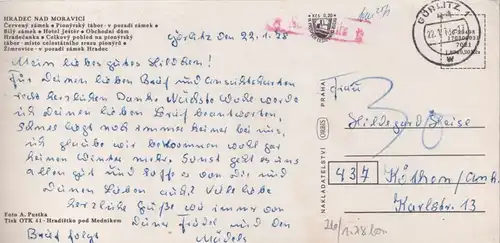 HRADEC NAD MORAVICÍ
Červený zámek • Pionýrský tábor - v pozadí zámek •
Bílý zámek • Hotel Jester • Obchodní dům
Hradečanka • Celkový pohled na pionýrský
tábor - místo celostátního srazu pionýrů •
Žimrovice - v pozadí zámek Hradec
Görlitz, den 22.1.78
Mein liebes gutes Hildchen!
Für Deinen lieben Brief und Ansichtskarten
recht herzlichen Dank. Nächste Woche werde
ich Deinen lieben Brief beantworten.
Schnee liegt noch immer keiner bei uns,
ich glaube wir bekommen wohl gar
keinen Winter mehr. Sonst geht es uns
allen gut und hoffe es von Dir und
Deinen Lieben auch! Viele liebe
herzliche Grüße wie immer von
Deiner Friedel und den
Brief folgt Mädels
Foto A. Pestka
Tisk OTK 41 - Hradištko pod Medníkem
Kčs 0,30
GÖRLITZ 1
22.1.78
7081
W
NAKLADATELSTVÍ ORBIS PRAHA
Frau
Hildegard
437 Köthen/Anh.
Karlstr. 13